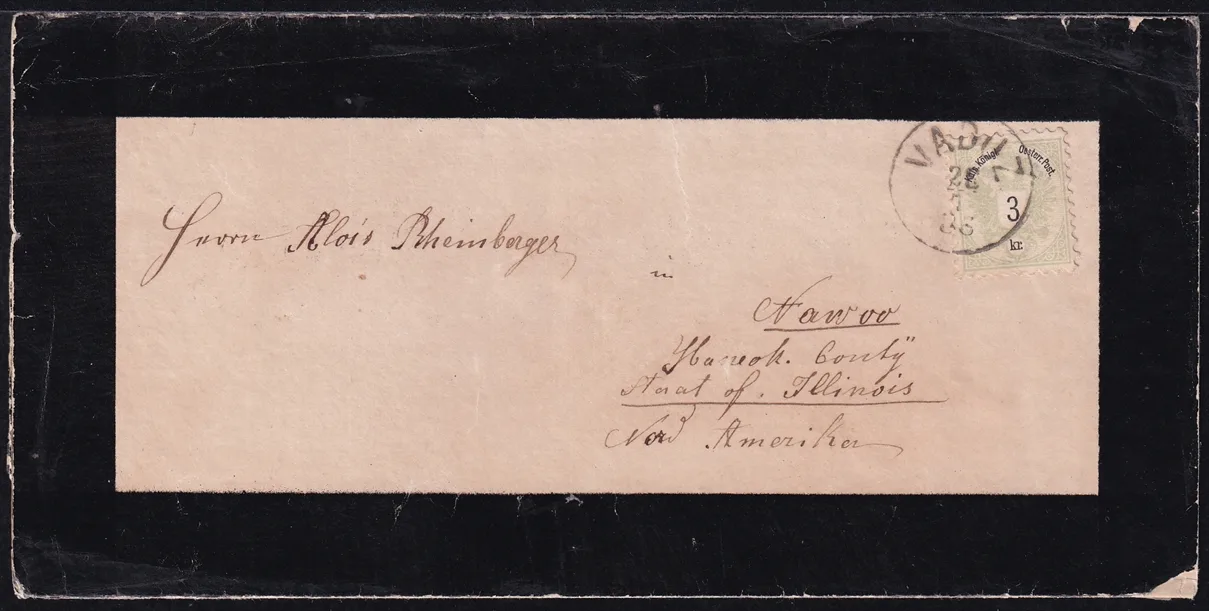 VADUZ
86
Kais. Königl. Oesterr. Post.
3
kr.
Herrn Alois Rheinberger
in
Nawoo
Staat of. Illinois
Nord Amerika